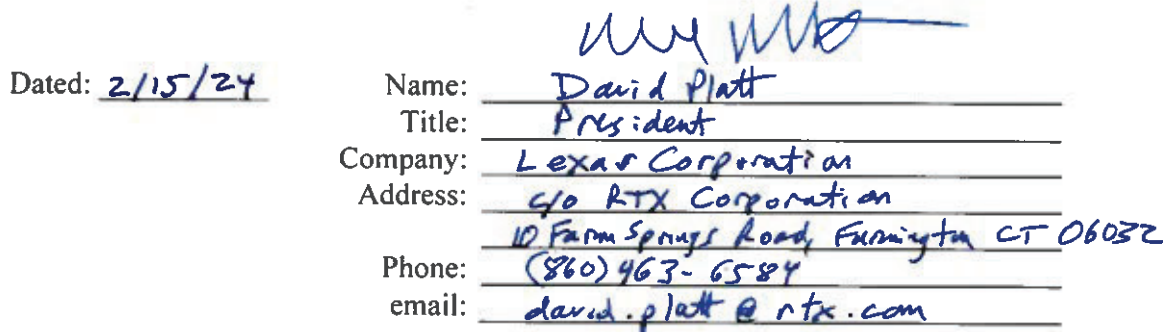 Dated: 2/15/24
Name: David Platt
Title: President
Company: Lexar Corporation
Address: c/o RTX Corporation
10 Farm Springs Road, Farmington CT 06032
Phone: (860) 463-6584
email: david.platt@rtx.com